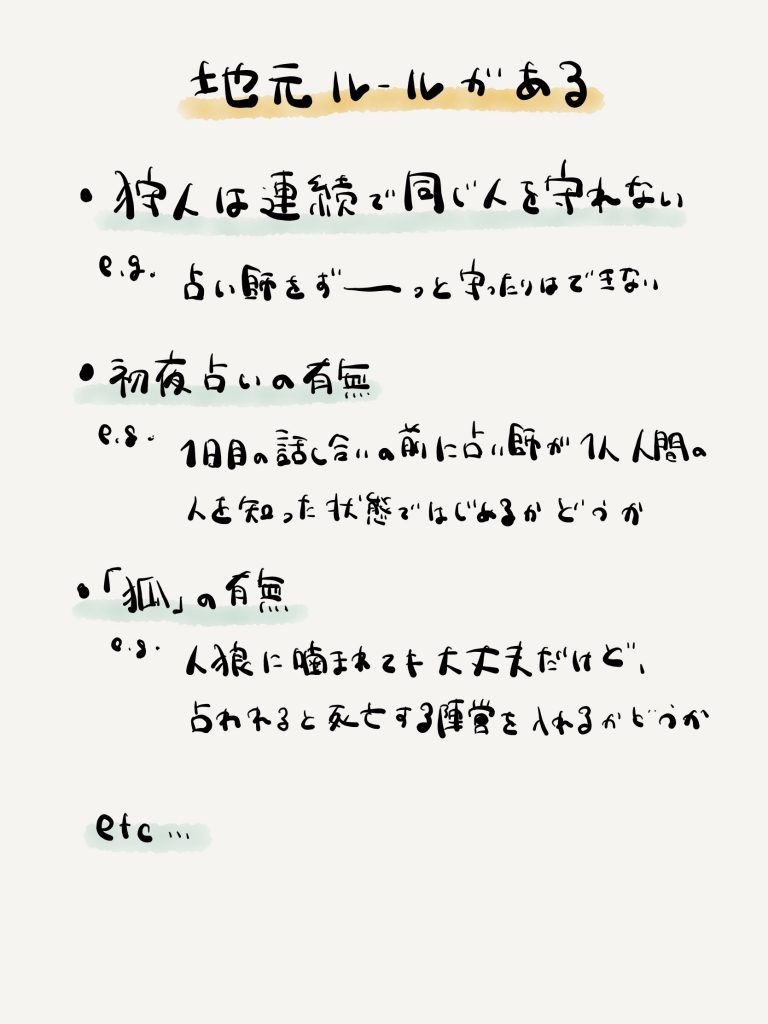 地元ルールがある
・狩人は連続で同じ人を守れない
e.g. 占い師をず──っと守ったりはできない
・初夜占いの有無
e.g. 1日目の話し合いの前に占い師が1人人間の
人を知った状態ではじめるかどうか
・「狐」の有無
e.g. 人狼に噛まれても大丈夫だけど、
占われると死亡する陣営を入れるかどうか
etc…